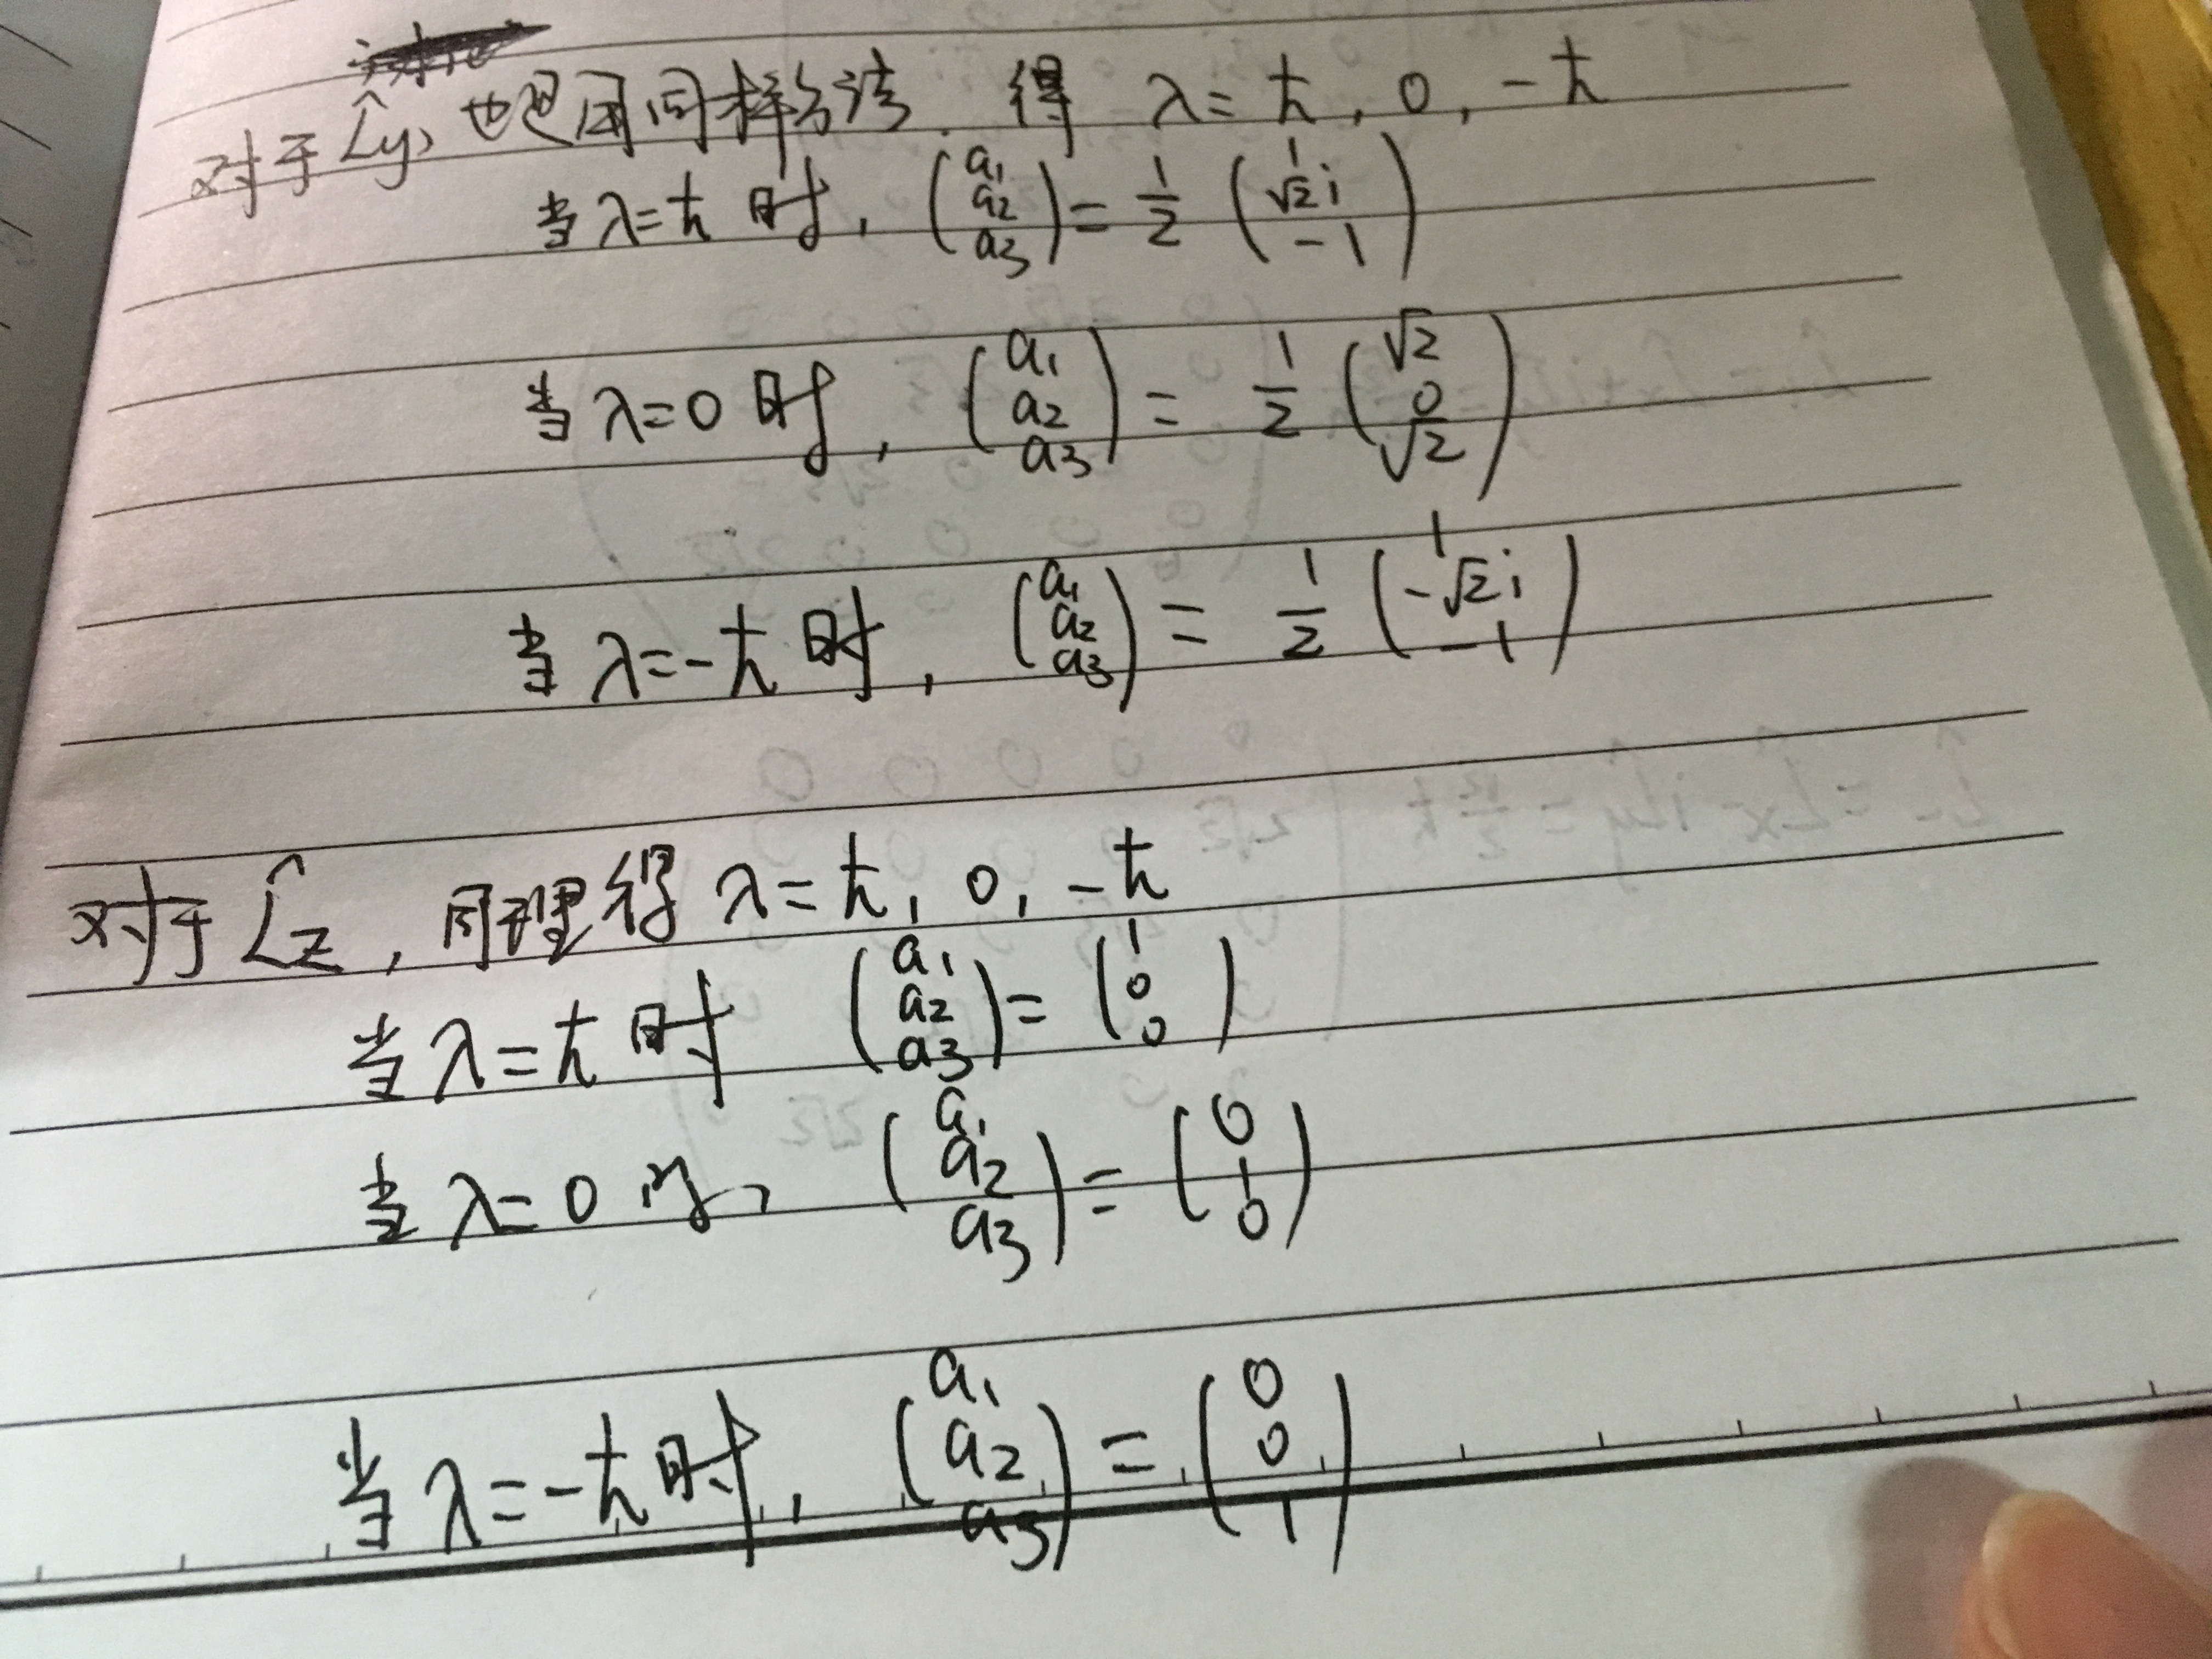 对于 L̂y, 也用同样方法. 得 λ=ħ, 0, -ħ
当 λ=ħ 时, (a₁ a₂ a₃) = 1/2 (1 √2i -1)
当 λ=0 时, (a₁ a₂ a₃) = 1/2 (√2 0 √2)
当 λ=-ħ 时, (a₁ a₂ a₃) = 1/2 (1 -√2i -1)
对于 L̂z, 同理得 λ=ħ, 0, -ħ
当 λ=ħ 时 (a₁ a₂ a₃) = (1 0 0)
当 λ=0 时, (a₁ a₂ a₃) = (0 1 0)
当 λ=-ħ 时, (a₁ a₂ a₃) = (0 0 1)